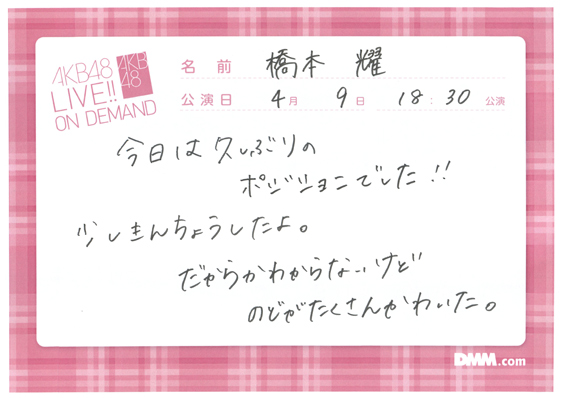 AKB48
LIVE!!
ON DEMAND
AKB
48
名前 橋本 耀
公演日 4月 9日 18:30 公演
今日は久しぶりの
ポジションでした!!
少しきんちょうしたよ。
だからかわからないけど
のどがたくさんかわいた。
DMM.com